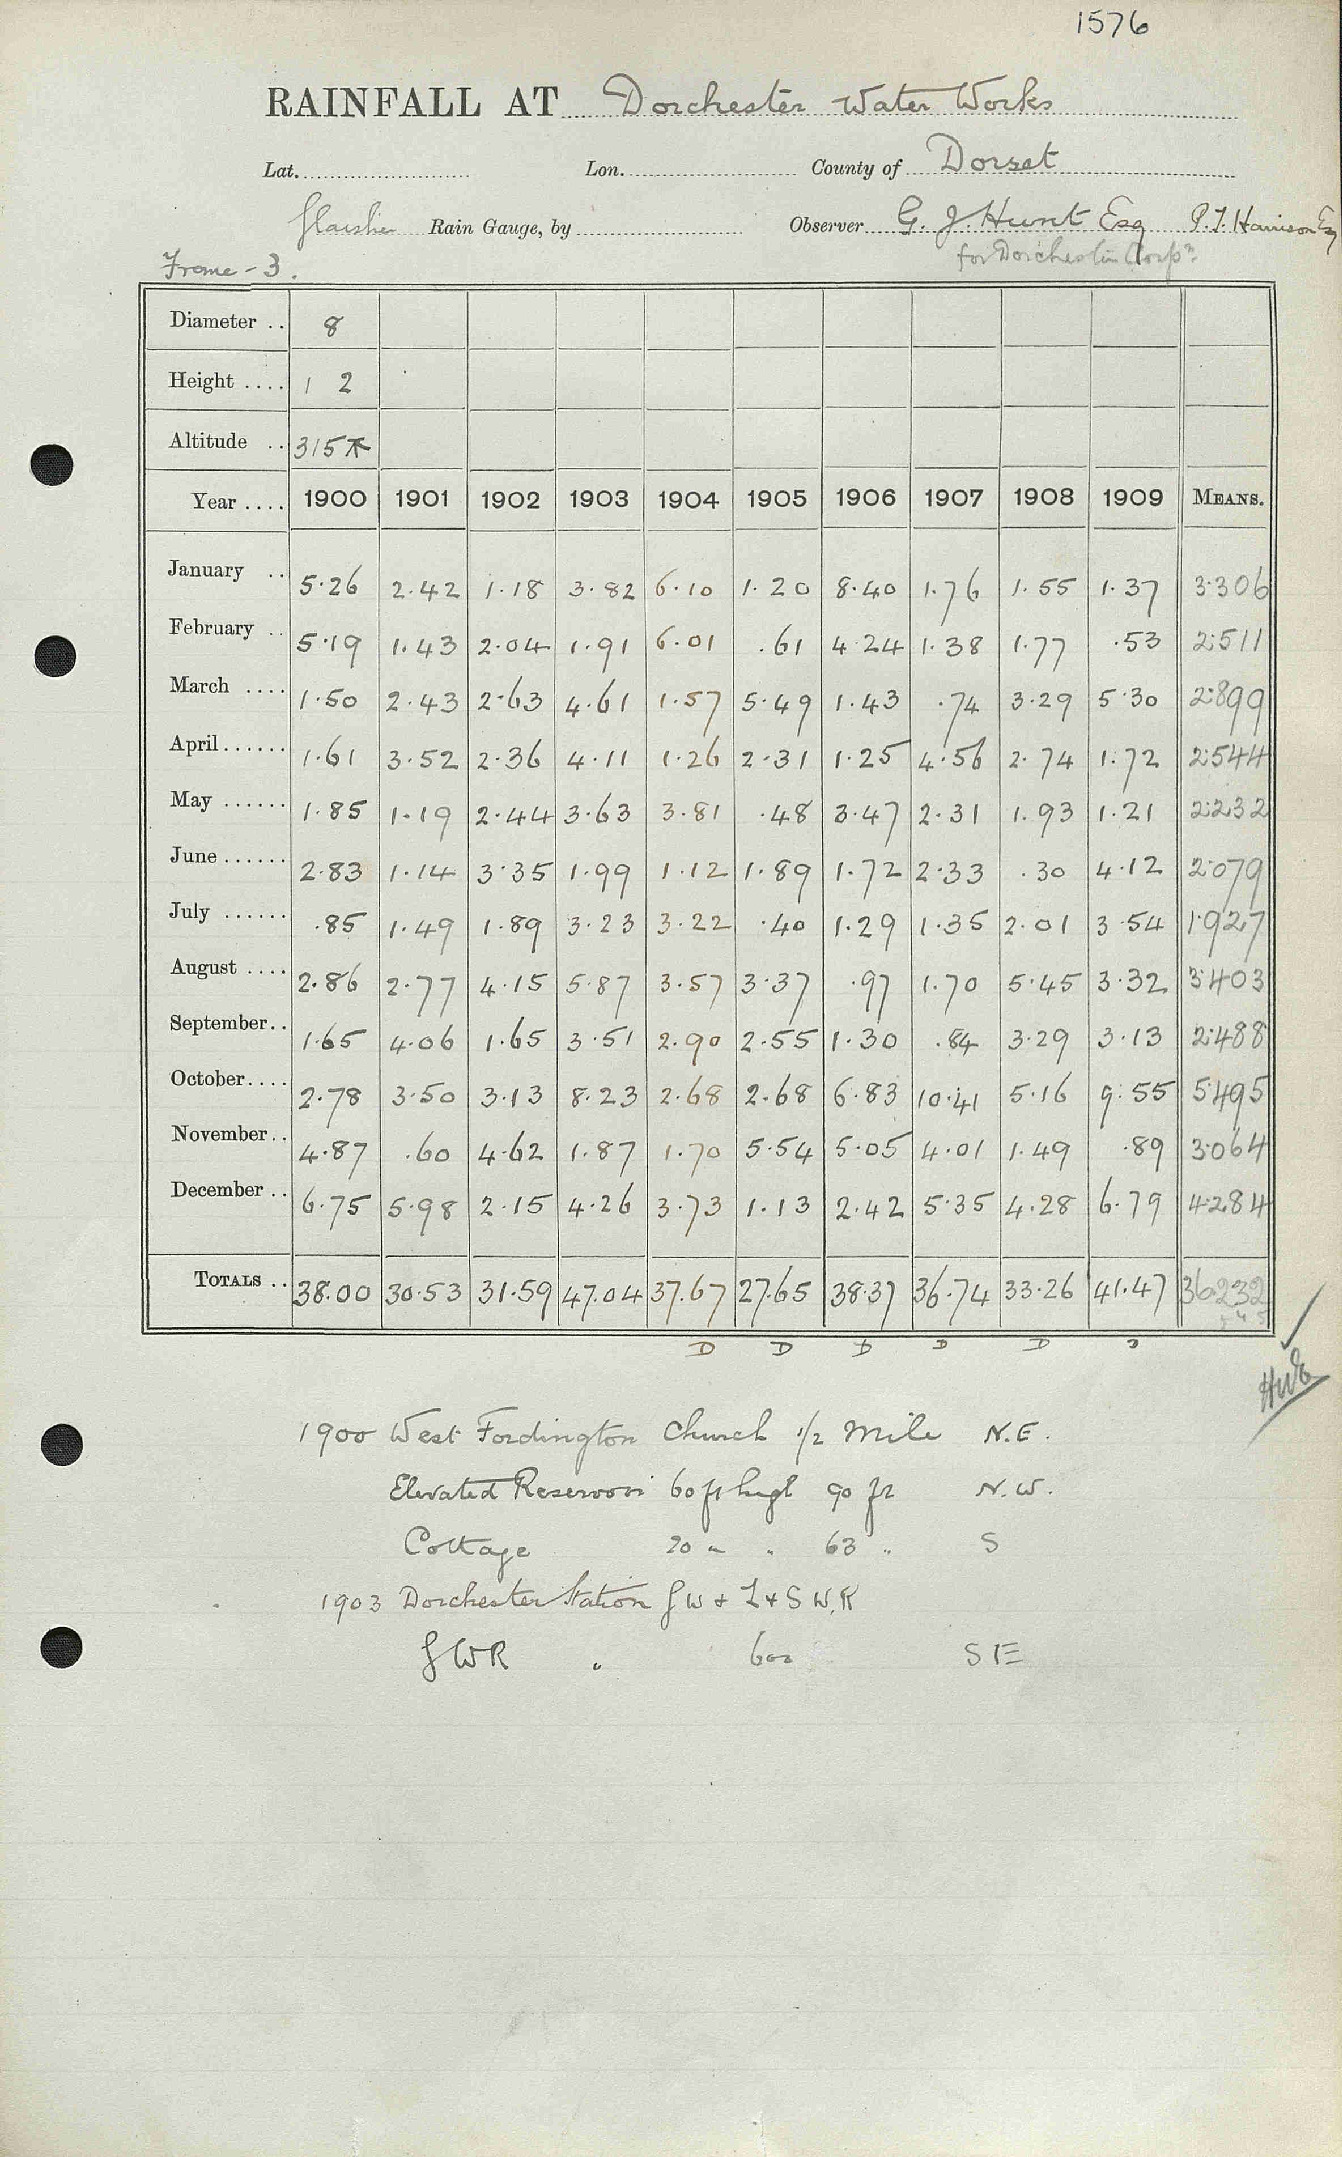 1576
RAINFALL AT Dorchester Water Works
Lat. Lon. County of Dorset
Glaisher Rain Gauge, by Observer G. J. Hunt Esq P. T. Harrison Esq
for Dorchester Corpn.
Frome - 3.
Diameter .. 8
Height .... 1 2
Altitude .. 315
Year .... 1900 1901 1902 1903 1904 1905 1906 1907 1908 1909 MEANS.
January .. 5.26 2.42 1.18 3.82 6.10 1.20 8.40 1.76 1.55 1.37 3.306
February .. 5.19 1.43 2.04 1.91 6.01 .61 4.24 1.38 1.77 .53 2.511
March .... 1.50 2.43 2.63 4.61 1.57 5.49 1.43 .74 3.29 5.30 2.899
April ...... 1.61 3.52 2.36 4.11 1.26 2.31 1.25 4.56 2.74 1.72 2.544
May ...... 1.85 1.19 2.44 3.63 3.81 .48 3.47 2.31 1.93 1.21 2.232
June ...... 2.83 1.14 3.35 1.99 1.12 1.89 1.72 2.33 .30 4.12 2.079
July ...... .85 1.49 1.89 3.23 3.22 .40 1.29 1.35 2.01 3.54 1.927
August .... 2.86 2.77 4.15 5.87 3.57 3.37 .97 1.70 5.45 3.32 3.403
September .. 1.65 4.06 1.65 3.51 2.90 2.55 1.30 .84 3.29 3.13 2.488
October .... 2.78 3.50 3.13 8.23 2.68 2.68 6.83 10.41 5.16 9.55 5.495
November .. 4.87 .60 4.62 1.87 1.70 5.54 5.05 4.01 1.49 .89 3.064
December .. 6.75 5.98 2.15 4.26 3.73 1.13 2.42 5.35 4.28 6.79 4.284
TOTALS .. 38.00 30.53 31.59 47.04 37.67 27.65 38.37 36.74 33.26 41.47 36.232
D D D D D
1900 West Fordington Church 1/2 Mile N.E.
Elevated Reservoir 60 ft high 90 ft N.W.
Cottage 20 " " 63 " S
1903 Dorchester Station G W + L + S W. R
G W R " 600 S E